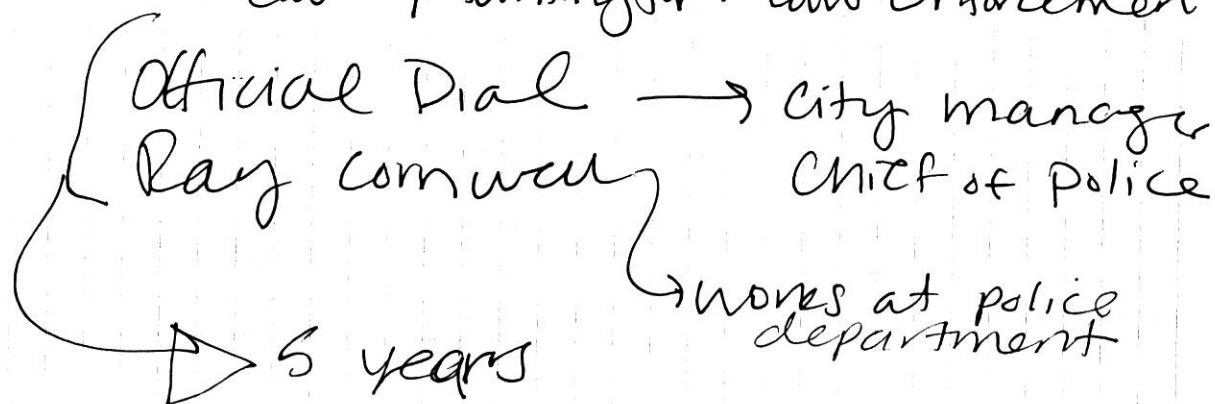 law enforcement
Official Dial → City manager
Ray Cornwell Chief of Police
→ works at police
department
5 years